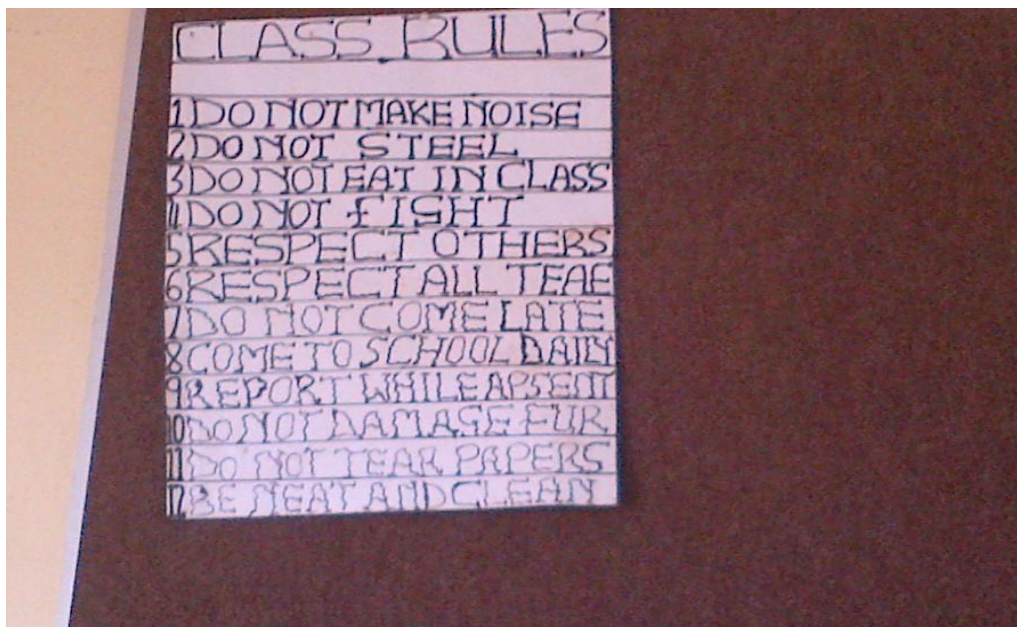 CLASS RULES
1 DO NOT MAKE NOISE
2 DO NOT STEEL
3 DO NOT EAT IN CLASS
4 DO NOT FIGHT
5 RESPECT OTHERS
6 RESPECT ALL TEAE
7 DO NOT COME LATE
8 COME TO SCHOOL DAILY
9 REPORT WHILE APSENT
10 DO NOT DAMAGE FUR
11 DO NOT TEAR PAPERS
12 BE NEAT AND CLEAN